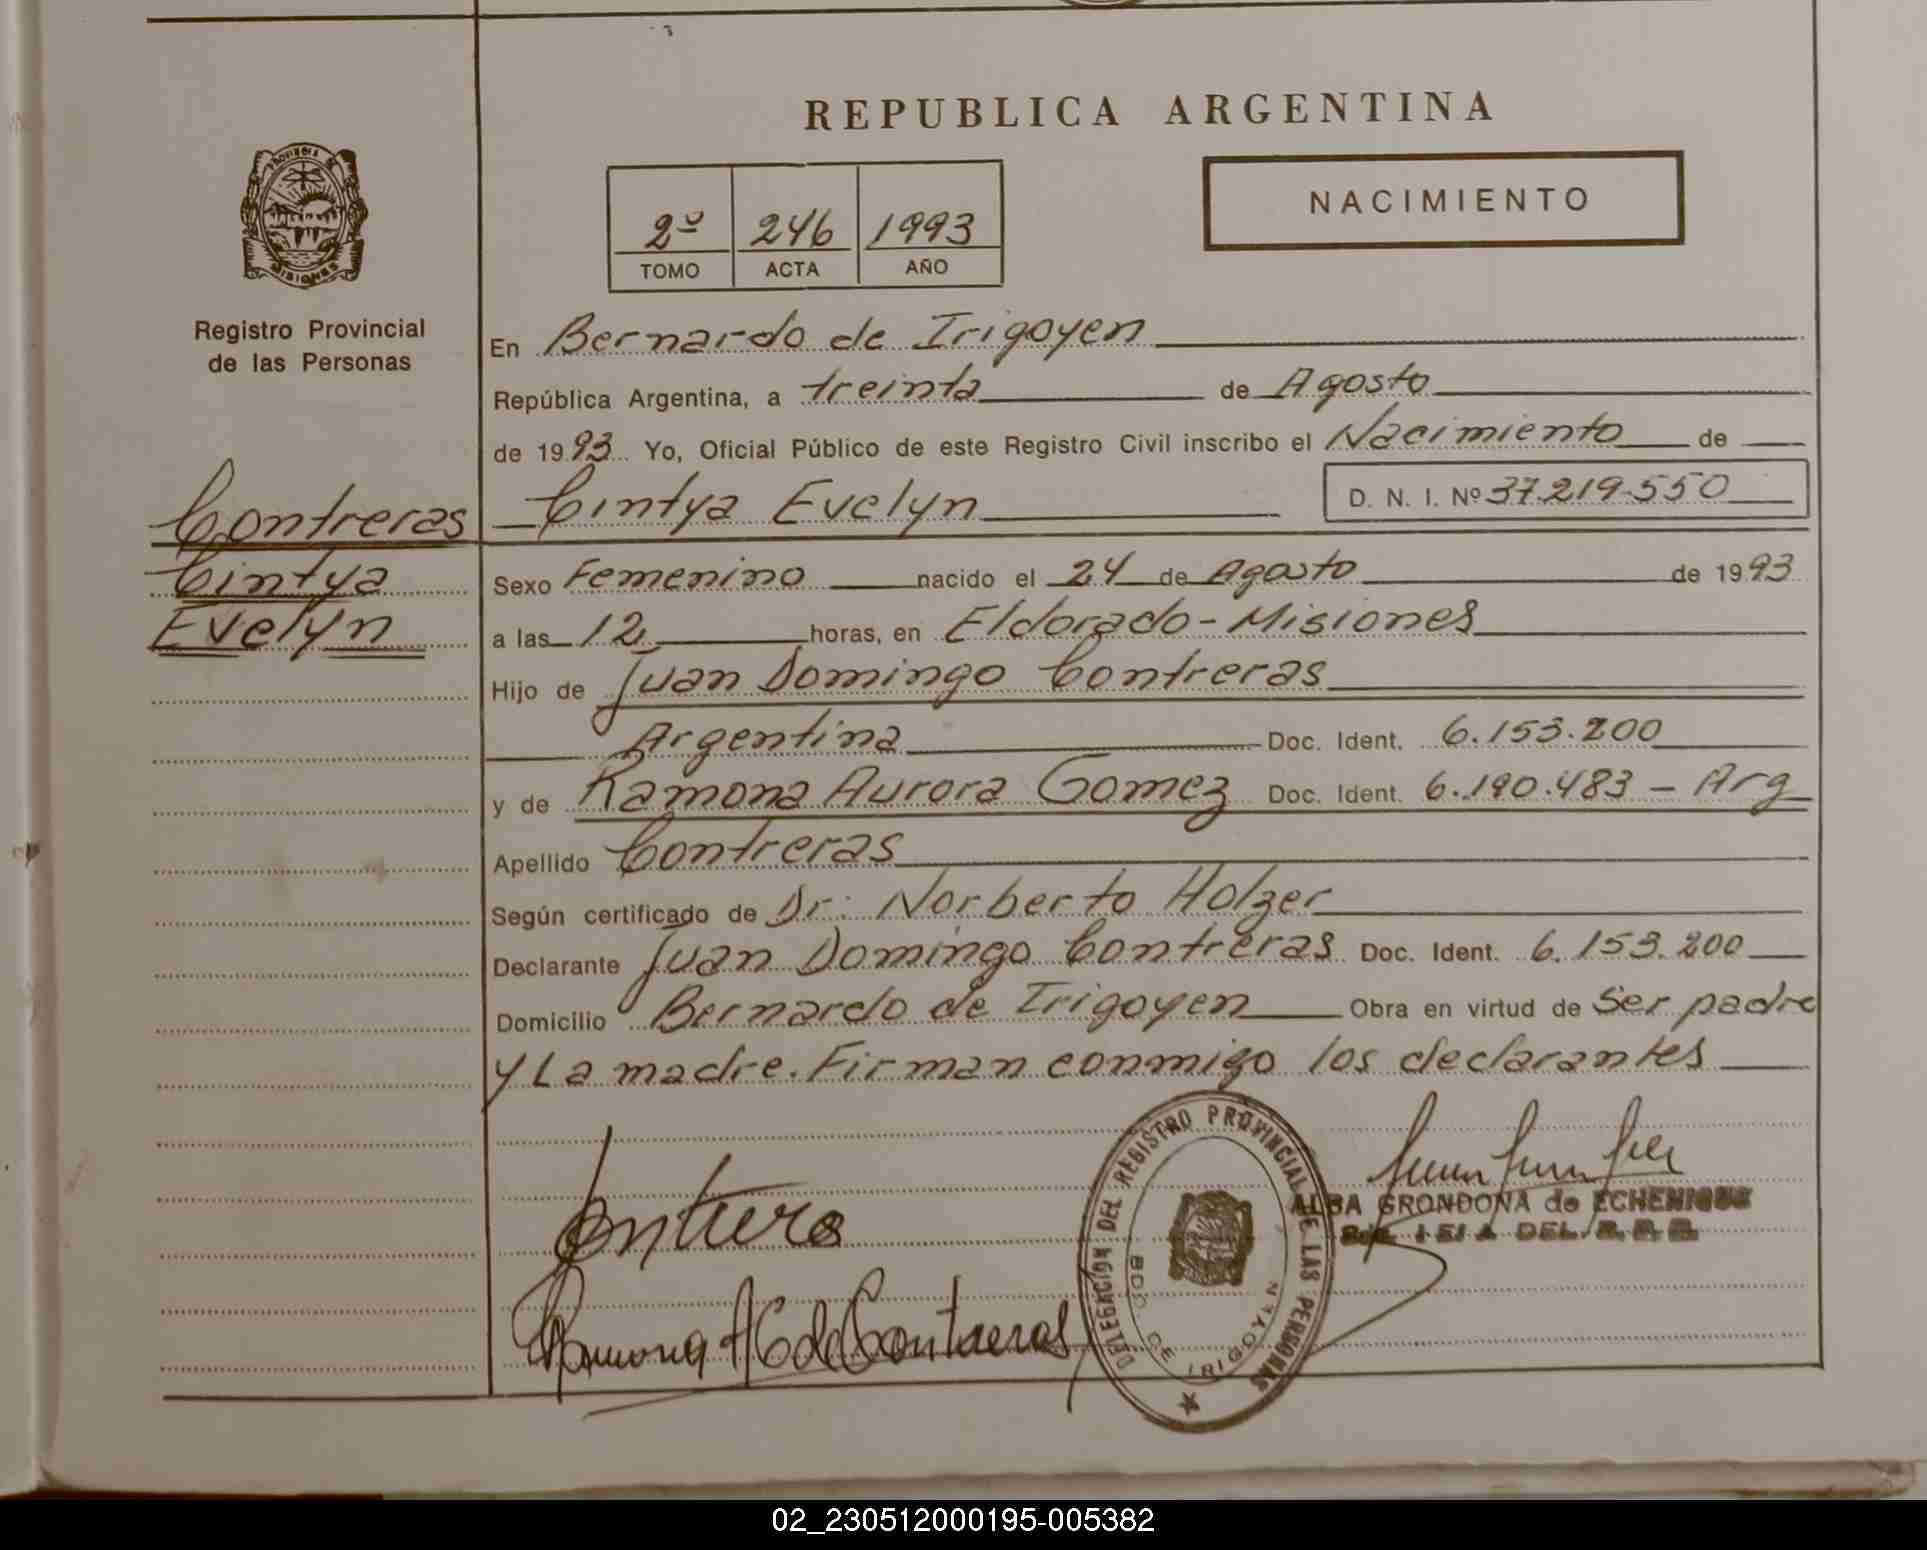 REPUBLICA ARGENTINA
NACIMIENTO
2º 246 1993
TOMO ACTA AÑO
Provincia de
MISIONES
Registro Provincial
de las Personas
Contreras
Cintya
Evelyn
En Bernardo de Irigoyen
República Argentina, a treinta de Agosto
de 1993 Yo, Oficial Público de este Registro Civil inscribo el Nacimiento de
Cintya Evelyn D. N. I. Nº 37.219.550
Sexo Femenino nacido el 24 de Agosto de 1993
a las 12 horas, en Eldorado-Misiones
Hijo de Juan Domingo Contreras
Argentina Doc. Ident. 6.153.200
y de Ramona Aurora Gomez Doc. Ident. 6.190.483 - Arg
Apellido Contreras
Según certificado de Dr: Norberto Holzer
Declarante Juan Domingo Contreras Doc. Ident. 6.153.200
Domicilio Bernardo de Irigoyen Obra en virtud de Ser padre
y La madre. Firman conmigo los declarantes
DELEGACION DEL REGISTRO PROVINCIAL DE LAS PERSONAS
BDO. DE IRIGOYEN
ALBA GRONDONA de ECHENIQUE
DEL R. P. P.
Contreras
Ramona AG de Contreras
02_230512000195-005382